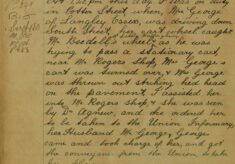 At 1.40 pm this day I was on duty
in Potter Street when Mrs George
of Langley Essex, was driving down
South Street, her rear wheel caught
Mr Beadell's wheel as he was
trying to pass a stationary cart,
near Mr Rogers Shop, Mrs George's
cart was turned over & Mrs George
was thrown out striking her head
on the pavement, I assisted her
into Mr Rogers shop & she was seen
by Dr Agnew, and he ordered her
to be taken to the Union Infirmary,
her Husband Mr George, George
came and took charge of her, and got
the conveyance from the Union to take